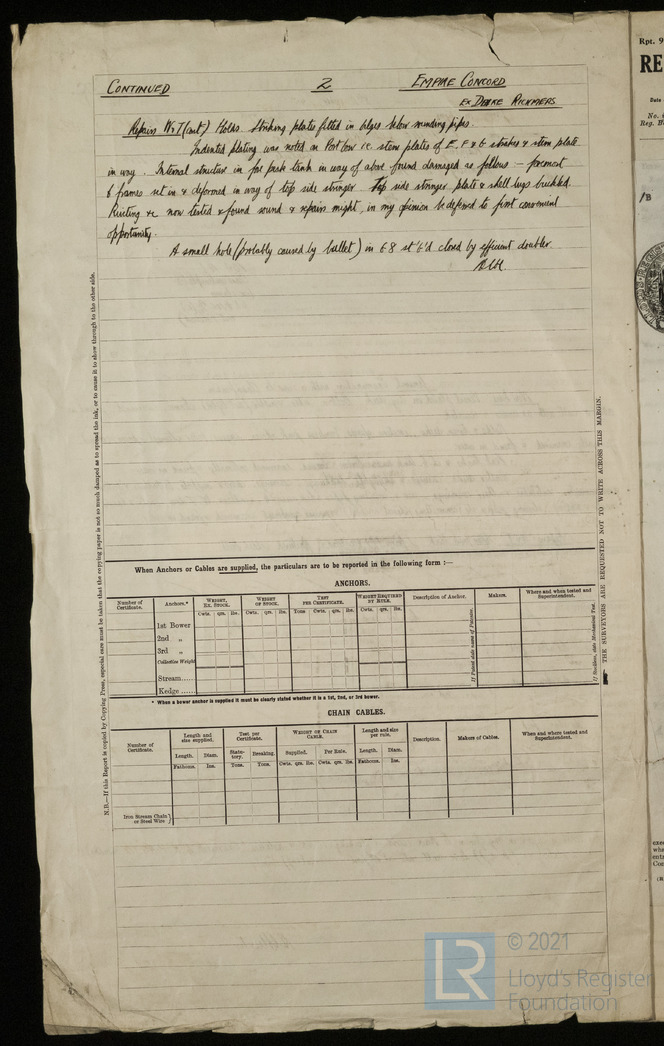 CONTINUED 2 EMPIRE CONCORD
EX DERRE RICKMERS
Repairs W.T (cont.) Holds. Striking plates fitted in bilges below sounding pipes.
Indented plating was noted on Port bow i.e. stem plates of E, F & G strakes & stem plate
in way. Internal structure in fore peak tank in way of above found damaged as follows :- foremost
6 frames set in & deformed in way of top side stringer top side stringer plate & shell lugs buckled.
Riveting &c now tested & found sound & repairs might, in my opinion be deferred to first convenient
opportunity.
A small hole (probably caused by bullet) in G8 st'b'd closed by efficient doubler.
N.B.—If this Report is copied by Copying Press, especial care must be taken that the copying paper is not so much damped as to spread the ink, or to cause it to show through to the other side.
THE SURVEYORS ARE REQUESTED NOT TO WRITE ACROSS THIS MARGIN.
When Anchors or Cables are supplied, the particulars are to be reported in the following form :—
ANCHORS.
Number of Certificate. Anchors.* WEIGHT, EX. STOCK. WEIGHT OF STOCK. TEST PER CERTIFICATE. WEIGHT REQUIRED BY RULE. Description of Anchor. Makers. Where and when tested and Superintendent.
Cwts. qrs. lbs. Cwts. qrs. lbs. Tons Cwt. qrs. lbs. Cwts. qrs. lbs.
1st Bower
2nd „
3rd „
Collective Weight
Stream.....
Kedge ......
If Patent state name of Patentee.
If Stockless, state Mechanical Test.
* When a bower anchor is supplied it must be clearly stated whether it is a 1st, 2nd, or 3rd bower.
CHAIN CABLES.
Number of Certificate. Length and size supplied. Test per Certificate. WEIGHT OF CHAIN CABLE. Length and size per rule. Description. Makers of Cables. When and where tested and Superintendent.
Length. Diam. Statutory. Breaking. Supplied. Per Rule. Length. Diam.
Fathoms. Ins. Tons. Tons. Cwts. qrs. lbs. Cwts. qrs. lbs. Fathoms. Ins.
Iron Stream Chain or Steel Wire }
Rpt. 9
RE
Date
No.
Reg. B
/B
LR
© 2021
Lloyd's Register
Foundation